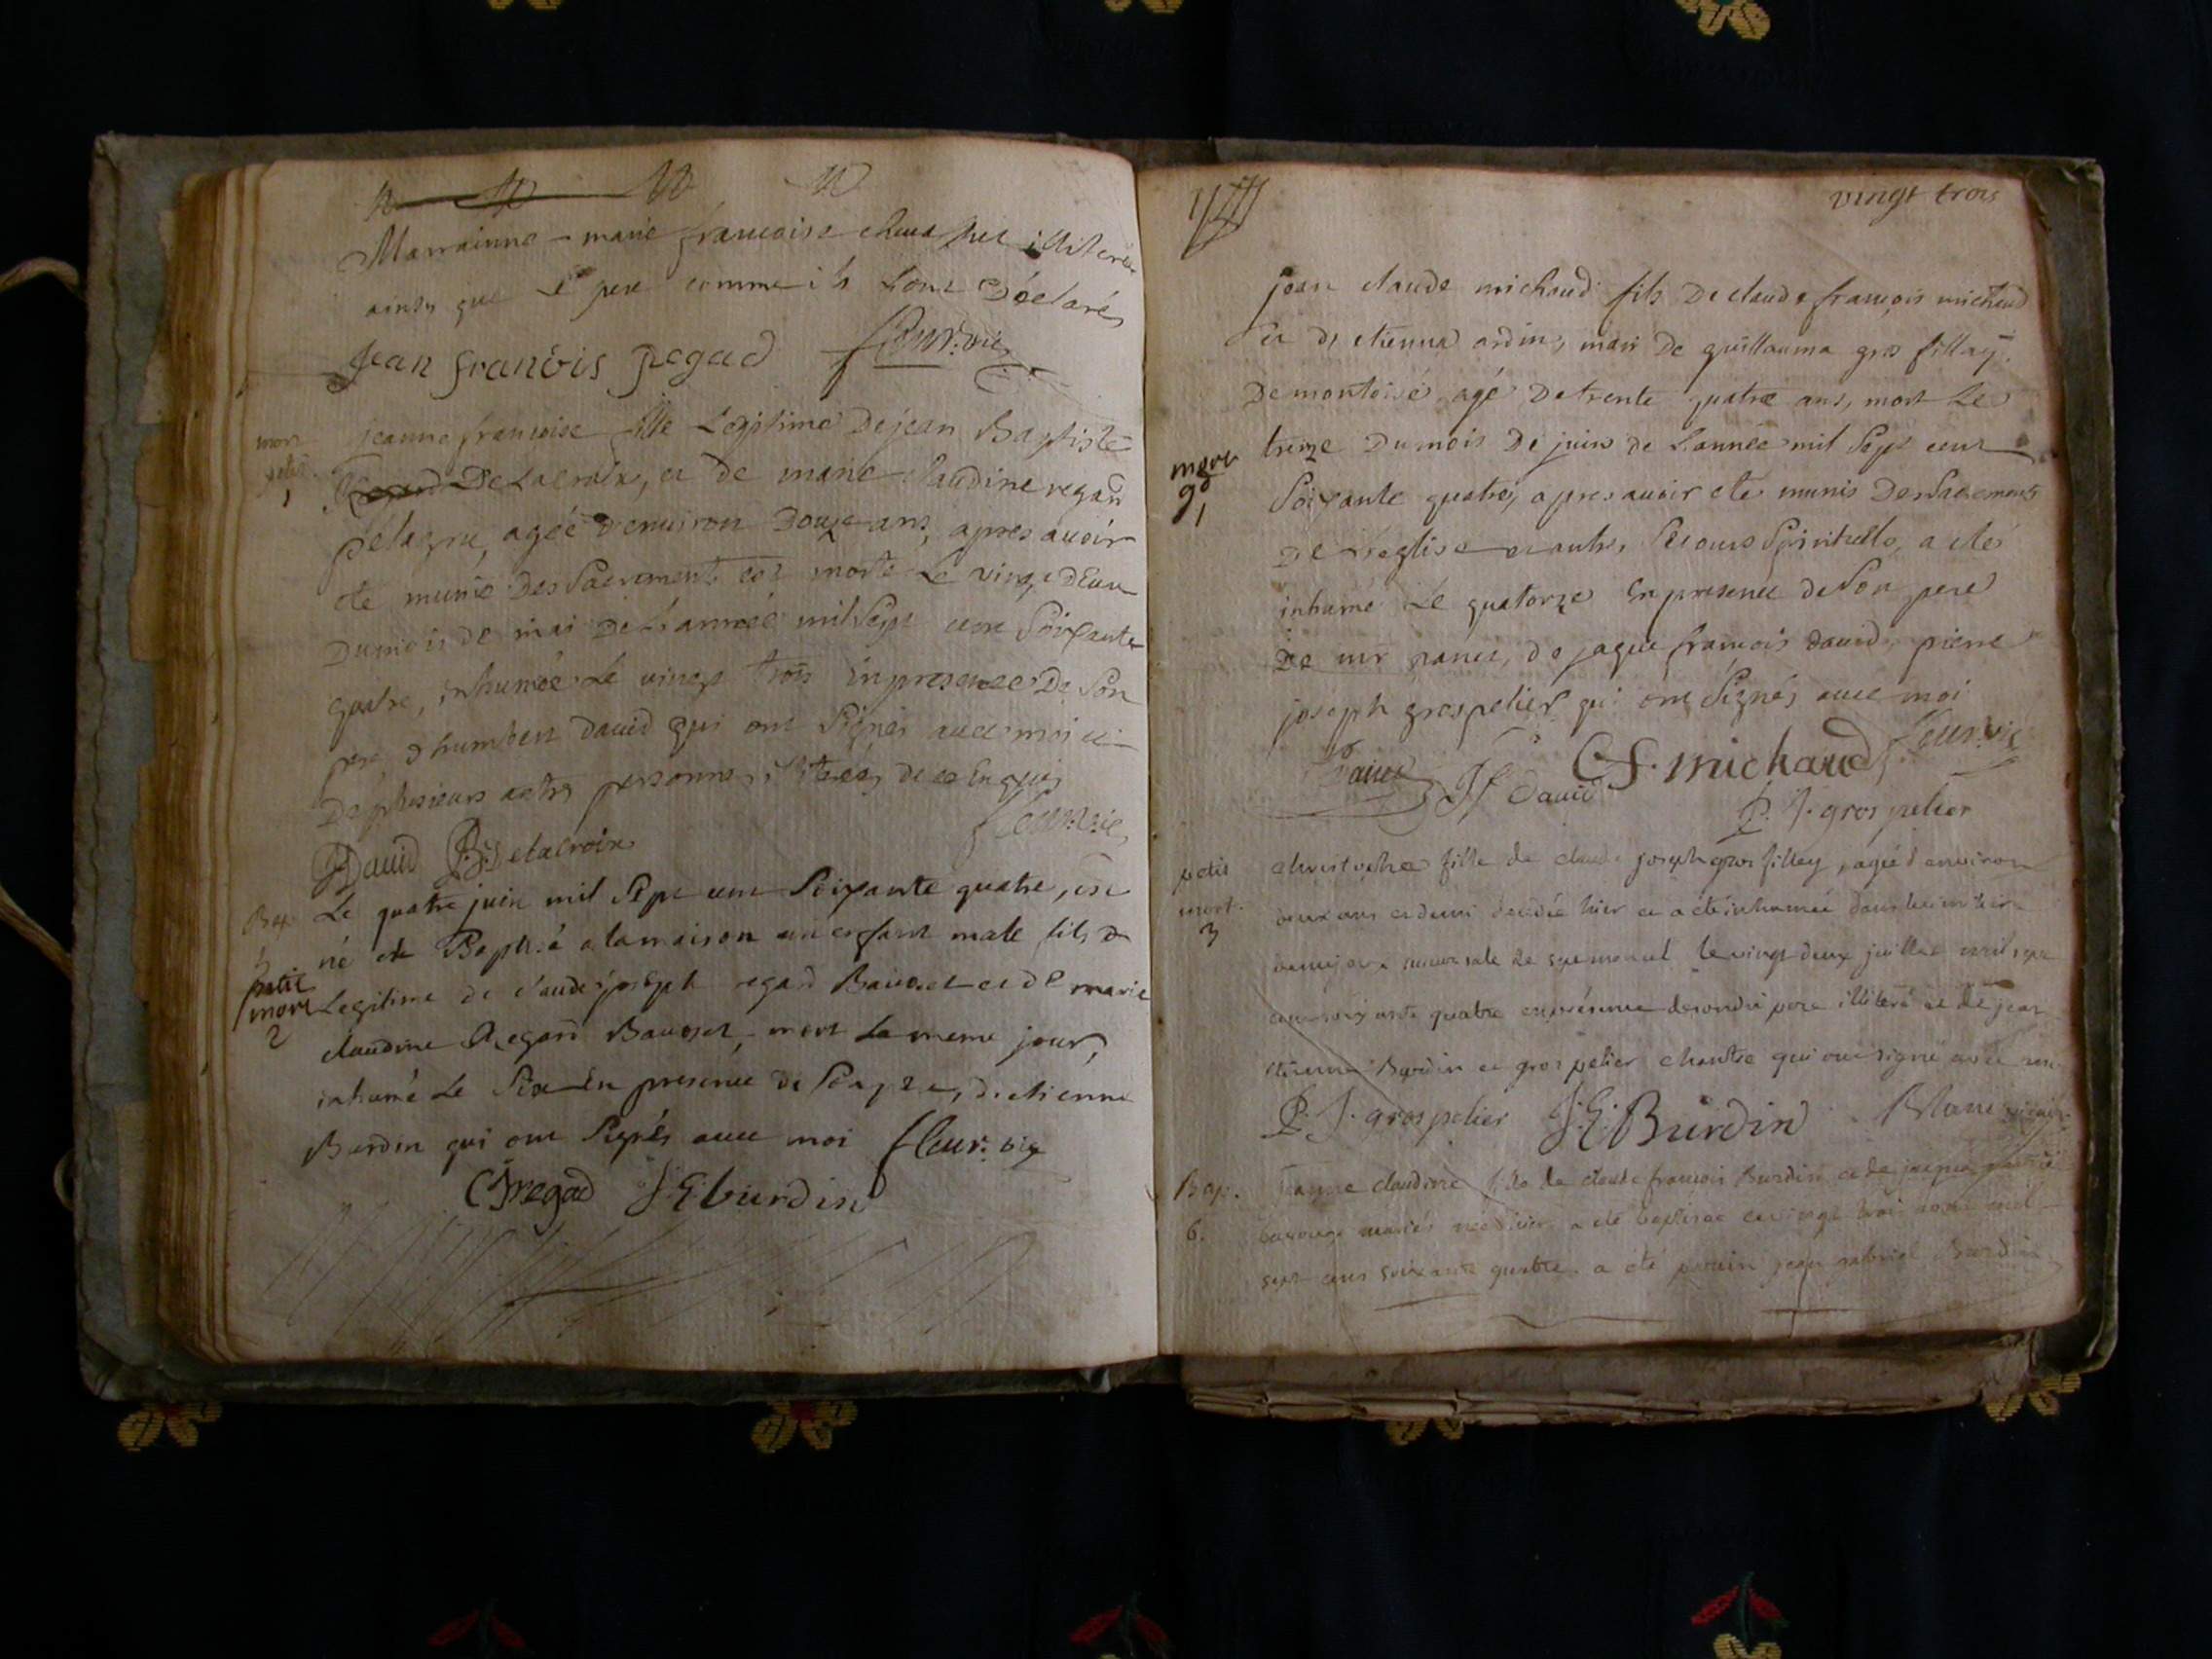 Marrainne - marie francoise illiterée
ainsy que le pere comme ils l'ont Déclarés
Jean francois Regad fleur: vic
mort
petit
1
jeanne francoise fille Legitime De jean Baptiste
Delacroix, et de marie Claudine regard
pelagru, agée d'environ Douze ans, apres avoir
eté munie Des Sacrements est morte Le vingt deux
Du mois de mai De L'année mil Sept cent Soixante
quatre, inhumée Le vingt trois En presence De Son
pere d'humbert david qui ont Signés avec moi
De plusieurs autres personnes illiterées de ce Enquis
David JB Delacroix fleur: vic
Bap
5
petit
mort
2
Le quatre juin mil Sept cent Soixante quatre, est
né et Baptisé a la maison un enfant male fils
Legitime de claude joseph regard Bavoset et de marie
claudine Regard Bavoset, mort Le meme jour,
inhumé Le Six En presence de Son pere, d'etienne
Burdin qui ont Signés avec moi fleur: vic
CJ regad J E burdin
vingt trois
jean claude michaud fils De claude françois michaud
et d'etienna ardin, mari De guillauma gros fillay
De montoisé agé De trente quatre ans, mort Le
mort
gd
1
treize Du mois De juin de L'année mil Sept cent
Soixante quatre, apres avoir eté munis Des Sacrements
De L'eglise et autres Secours Spirituells, a eté
inhumé Le quatorze En presence de Son pere
De mr de jaque françois david, pierre
joseph grospelier qui ont Signés avec moi
J f David C f. michaud fleur: vic
P. J. grospelier
petit
mort
3
christophe fille de claude joseph gros fillay, agée d'environ
deux ans et demi decedée hier a eté inhumée dans le cimetiere
succursale de le vingt deux juillet mil sept
cent soixante quatre en présence de son dit pere illiteré et de jean
etienne Burdin et gros pelier chantre qui ont signé avec moi
P. J. grospelier J. E. Burdin Blanc vicaire
Bap.
6.
jeanne claudine fille de claude françois Burdin et de
mariés née hier a eté baptisee le vingt trois aout mil
sept cens soixante quatre a eté parrin jean gabriel Burdin